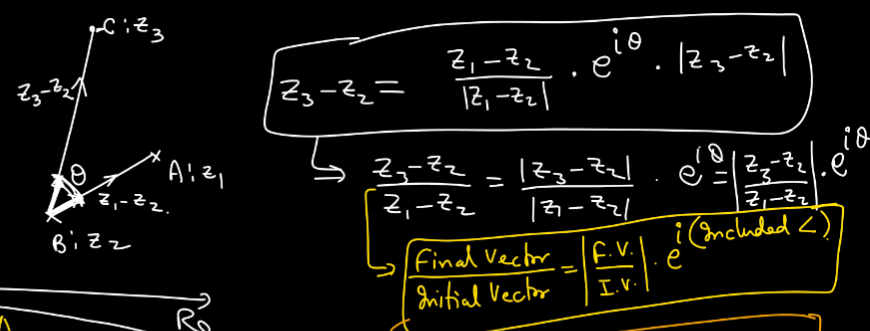 C : z₃
z₃-z₂
z₃-z₂ = (z₁-z₂)/|z₁-z₂| · e^{iθ} · |z₃-z₂|
θ
A : z₁
z₁-z₂.
B : z₂
⇒ (z₃-z₂)/(z₁-z₂) = |z₃-z₂|/|z₁-z₂| · e^{iθ} = |(z₃-z₂)/(z₁-z₂)| · e^{iθ}
Final Vector/Initial Vector = |F.V./I.V.| · e^{i(Included <)}